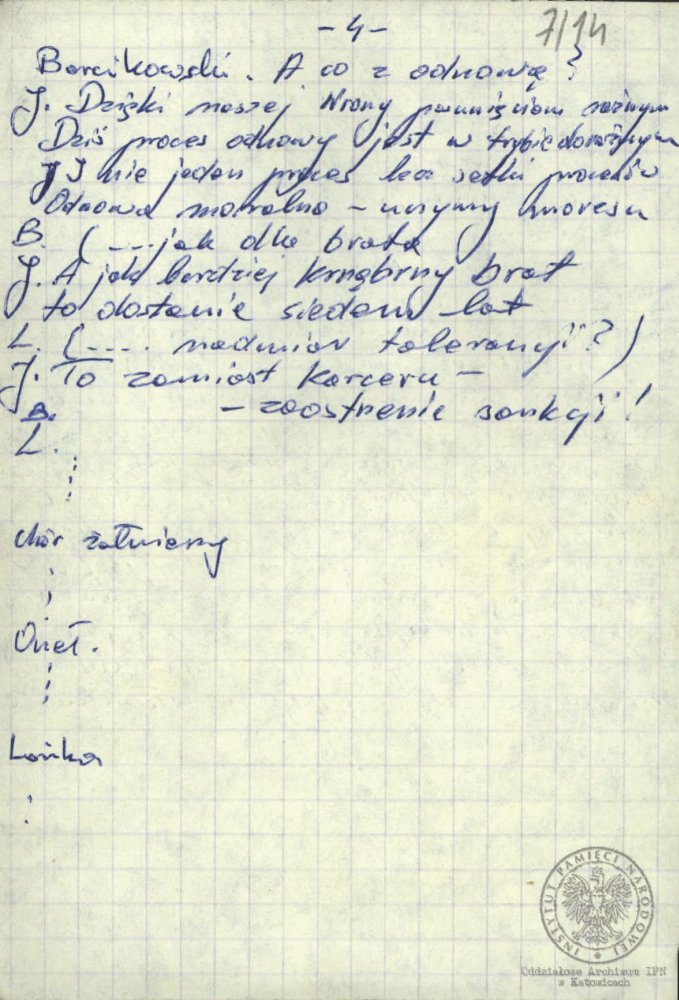 -4-
7/14
Barcikowski. A co z odnową?
J. Dzięki naszej Wrony posunięciom różnym
Dziś proces odnowy jest w trybie doraźnym
J I nie jeden proces lecz setki procesów
Odnowa moralna - uczymy moresu
B. (....jak dla brata
J. A jak bardziej krnąbrny brat
to dostanie siedem lat
L. (.... nadmiar tolerancji?)
J. To zamiast karceru -
- zaostrzenie sankcji!
B.
L.
Chór żołnierzy
Orzeł.
Łońka
INSTYTUT PAMIĘCI NARODOWEJ
Oddziałowe Archiwum IPN
w Katowicach